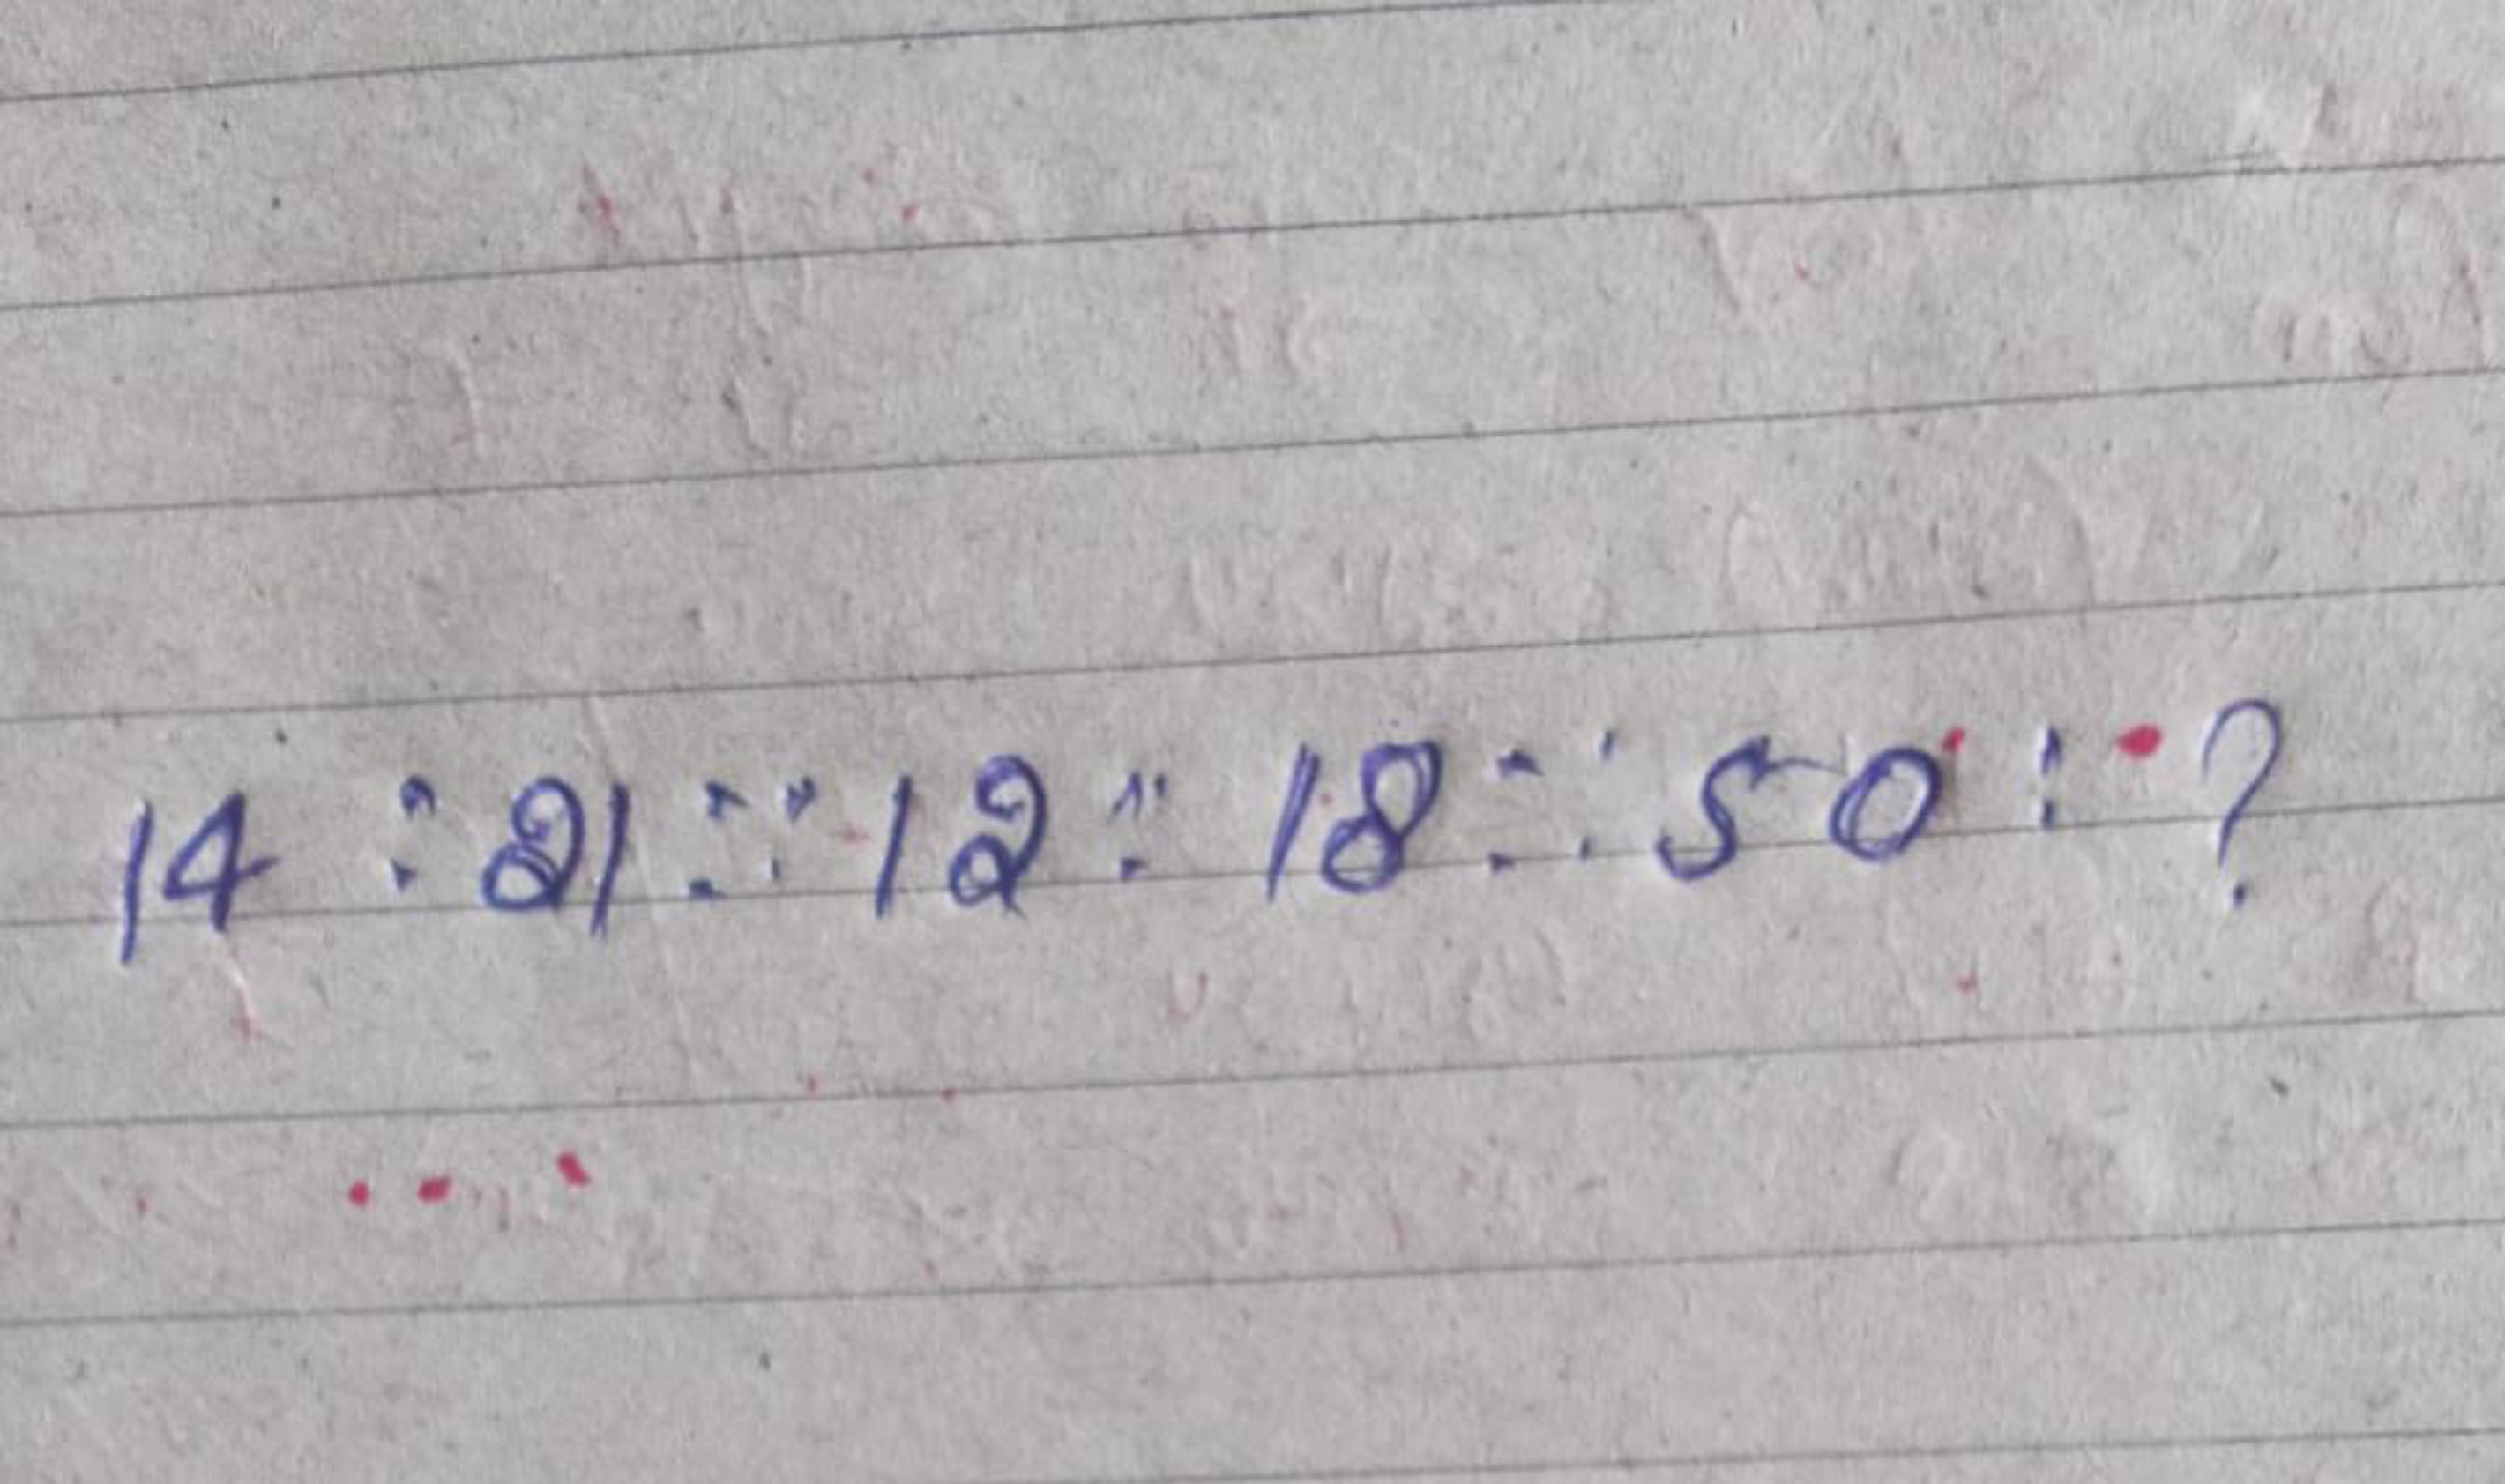 14 : 21 :: 12 : 18 :: 50 : ?